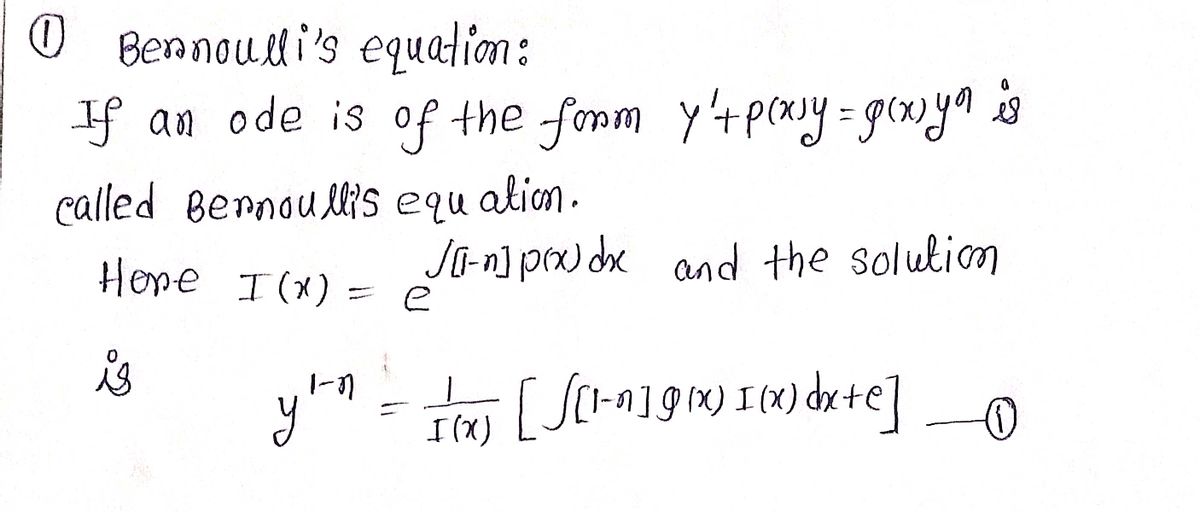 ① Bernoulli's equation:
If an ode is of the form y'+p(x)y = g(x)yⁿ is
called Bernoulli's equation.
Here I(x) = e^∫[1-n]p(x)dx and the solution
is
y^1-n = 1/I(x) [∫[1-n]g(x) I(x) dx+c] —①